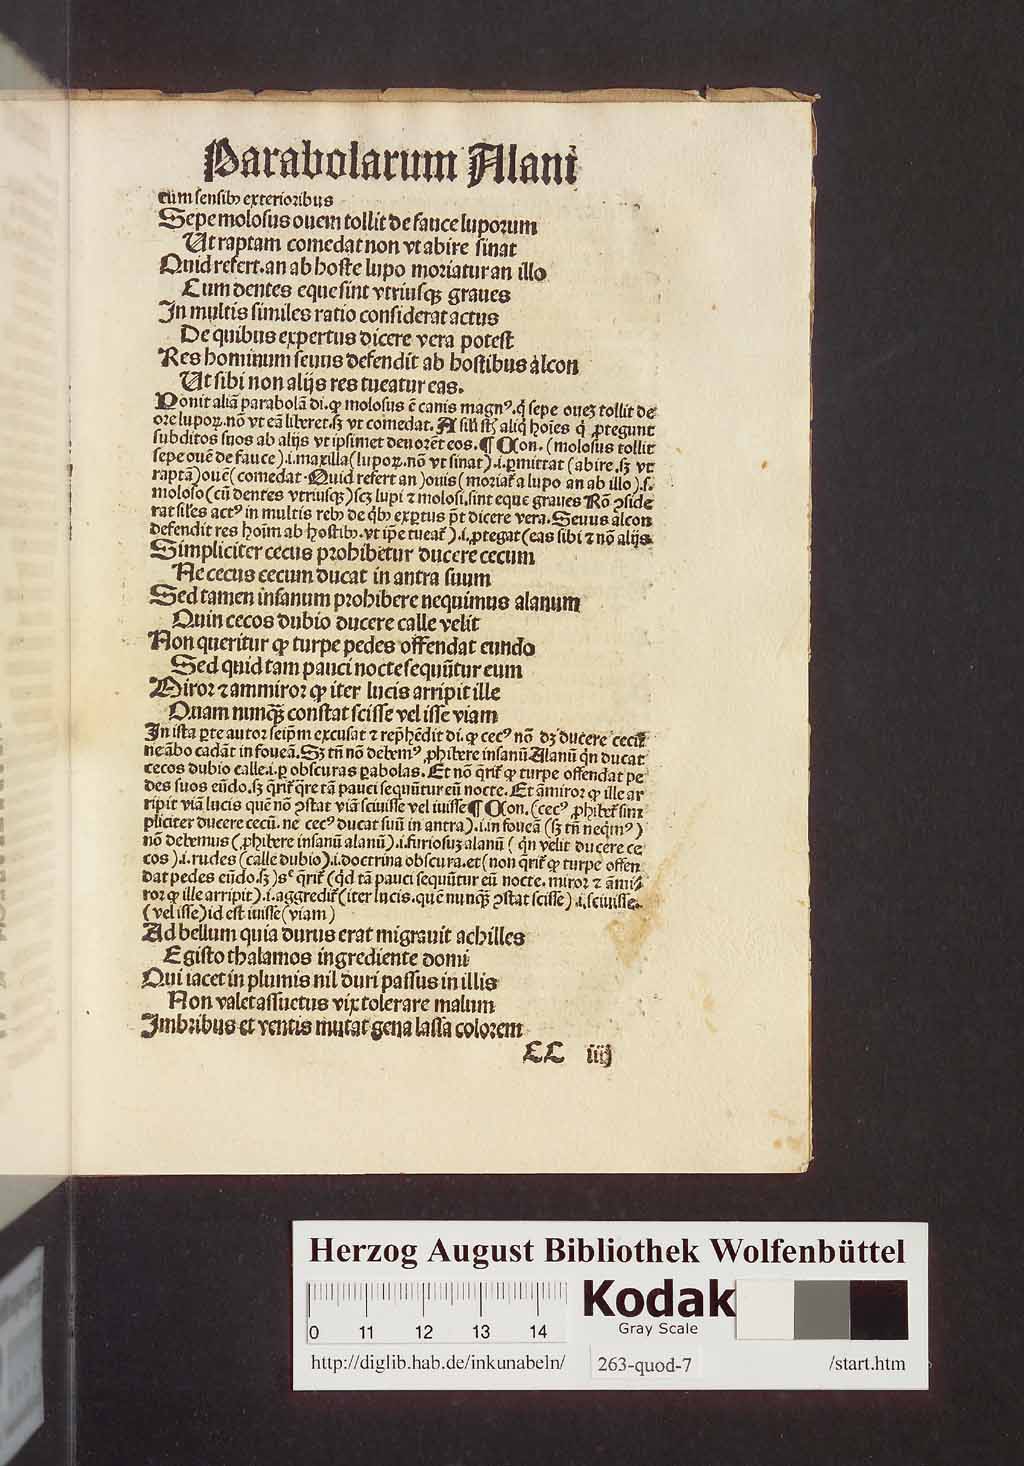 Parabolarum Alani
cū sensibꝰ exterioribus
Sepe molosus ouem tollit de fauce luporum
Ut raptam comedat non vt abire sinat
Quid refert.an ab hoste lupo moriatur an illo
Cum dentes eque sint vtriusqꝫ graues
In multis similes ratio considerat actus
De quibus expertus dicere vera potest
Res hominum seuus defendit ab hostibus alcon
Ut sibi non alijs res tueatur eas.
Ponit aliā parabolā di. ꝙ molosus ē canis magnꝰ.q̇ sepe oueꝫ tollit de
ore lupoꝝ.nō vt eā liberet.sꝫ vt comedat. A sili st̄ aliq̇ hoīes q̇ ꝓtegunt
subditos suos ab alijs vt ipsimet deuorēt eos. ¶ Con. (molosus tollit
sepe ouē de fauce).i.maxilla(lupoꝝ.nō vt sinat).i.ꝑmittat (abire.sꝫ vt
raptā)ouē(comedat. Quid refert an)ouis(moriat̄ a lupo an ab illo).s.
moloso(cū dentes vtriusqꝫ)scꝫ lupi ⁊ molosi.sint eque graues Rō ꝯside
rat siles actꝰ in multis rebꝰ de q̇bꝰ exꝑtus pt̄ dicere vera. Seuus alcon
defendit res hoīm ab hostibꝰ.vt ip̄e tueat̄).i.ꝓtegat(eas sibi ⁊ nō alijs.
Simpliciter cecus prohibetur ducere cecum
Ne cecus cecum ducat in antra suum
Sed tamen insanum prohibere nequimus alanum
Quin cecos dubio ducere calle velit
Non queritur ꝙ turpe pedes offendat eundo
Sed quid tam pauci nocte sequūtur eum
Miror ⁊ ammiror ꝙ iter lucis arripit ille
Quam nunqꝫ̄ constat scisse vel isse viam
In ista ꝑte autor seip̄m excusat ⁊ rep̄hēdit di. ꝙ cecꝰ nō dꝫ ducere cecū
ne ābo cadāt in foueā. Sꝫ tn̄ nō debemꝰ ꝓhibere insanū Alanū q̇n ducat
cecos dubio calle.i.ꝑ obscuras ꝑabolas. Et nō q̄rit̄ ꝙ turpe offendat pe
des suos eūdo.sꝫ q̄rit̄ q̄re tā pauci sequūtur eū nocte. Et āmiror ꝙ ille ar
ripit viā lucis quē nō ꝯstat viā sciuisse vel iuisse ¶ Con. (cecꝰ ꝓhibet̄ sim
pliciter ducere cecū. ne cecꝰ ducat suū in antra).i.in foueā (sꝫ tn̄ neqimꝰ)
nō debemus (ꝓhibere insanū alanū).i.furiosuꝫ alanū (q̇n velit ducere ce
cos).i.rudes (calle dubio).i.doctrina obscura.et(non q̄rit̄ ꝙ turpe offen
dat pedes eūdo.sꝫ)sꝫ q̄rit̄ (qd̄ tā pauci sequūtur eū nocte. miror ⁊ āmi
ror ꝙ ille arripit).i.aggredit̄ (iter lucis.quē nunqꝫ̄ ꝯstat scisse).i.sciuisse.
(vel isse)id est iuisse(viam)
Ad bellum quia durus erat migrauit achilles
Egisto thalamos ingrediente domi
Qui iacet in plumis nil duri passus in illis
Non valet assuetus vix tolerare malum
Imbribus et ventis mutat gena lassa colorem
LL iiij
Herzog August Bibliothek Wolfenbüttel
0 11 12 13 14
Kodak
Gray Scale
http://diglib.hab.de/inkunabeln/
263-quod-7
/start.htm